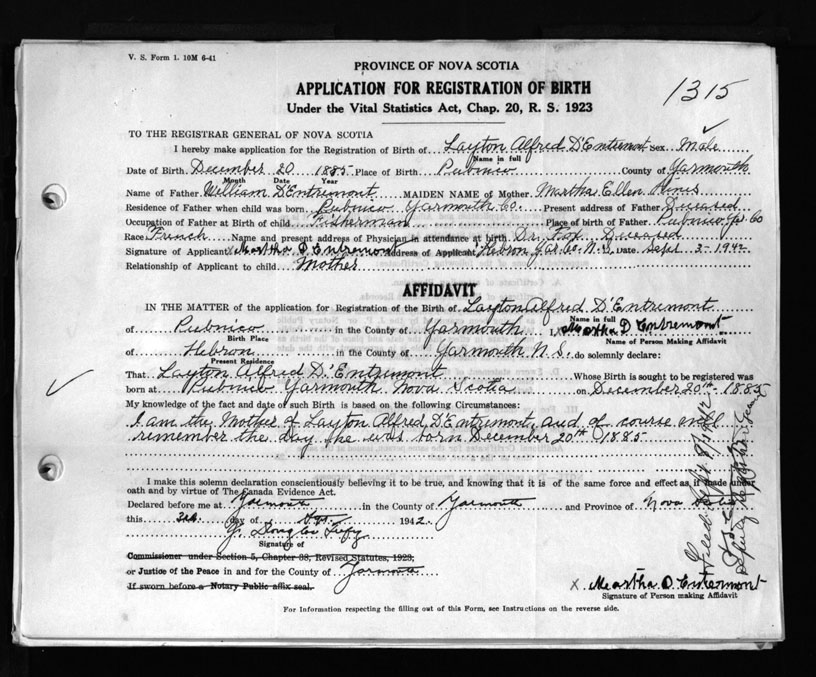 V. S. Form 1. 10M 6-41
PROVINCE OF NOVA SCOTIA
1315
APPLICATION FOR REGISTRATION OF BIRTH
Under the Vital Statistics Act, Chap. 20, R. S. 1923
TO THE REGISTRAR GENERAL OF NOVA SCOTIA
I hereby make application for the Registration of Birth of Layton Alfred D'Entremont Sex Male
Name in full
Date of Birth December 20 1885 Place of Birth Pubnico County of Yarmouth
Month Date Year
Name of Father William D'Entremont MAIDEN NAME of Mother Martha Ellen
Residence of Father when child was born Pubnico Yarmouth Co. Present address of Father Deceased
Occupation of Father at Birth of child Fisherman Place of birth of Father Pubnico Yar. Co
Race French Name and present address of Physician in attendance at birth Dr. Fox Deceased
Signature of Applicant Martha D Entremont address of Applicant Hebron Yar. Co. N.S. Date Sept 3-1942
Relationship of Applicant to child Mother
AFFIDAVIT
IN THE MATTER of the application for Registration of the Birth of Layton Alfred D'Entremont
Name in full
of Pubnico in the County of Yarmouth I, x Martha D Entremont
Birth Place Name of Person Making Affidavit
of Hebron in the County of Yarmouth N.S. do solemnly declare:
Present Residence
That Layton Alfred D'Entremont Whose Birth is sought to be registered was
born at Pubnico Yarmouth Nova Scotia on December 20th 1885
My knowledge of the fact and date of such Birth is based on the following Circumstances:
I am the Mother of Layton Alfred D'Entremont, and of course well
remember the day he was born December 20th 1885
I make this solemn declaration conscientiously believing it to be true, and knowing that it is of the same force and effect as if made under
oath and by virtue of The Canada Evidence Act.
Declared before me at Yarmouth in the County of Yarmouth and Province of Nova Scotia
this 3rd day of 1942.
Signature of
Commissioner under Section 5, Chapter 38, Revised Statutes, 1923,
or Justice of the Peace in and for the County of Yarmouth
If sworn before a Notary Public affix seal.
X. Martha D. Entermont
Signature of Person making Affidavit
For Information respecting the filling out of this Form, see Instructions on the reverse side.